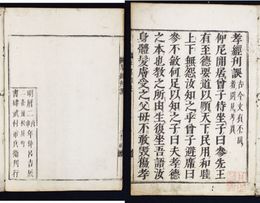 孝經刊誤 古今文有不同
者別見考異
仲尼閒居曾子侍坐子曰參先王
有至德要道以順天下民用和睦
上下無怨汝知之乎曾子避席曰
參不敏何足以知之子曰夫孝德
之本也教之所由生復坐吾語汝
身體髮膚受之父母不敢毀傷孝
明曆二丙申年仲呂吉辰
書肆武村市兵衛刊行